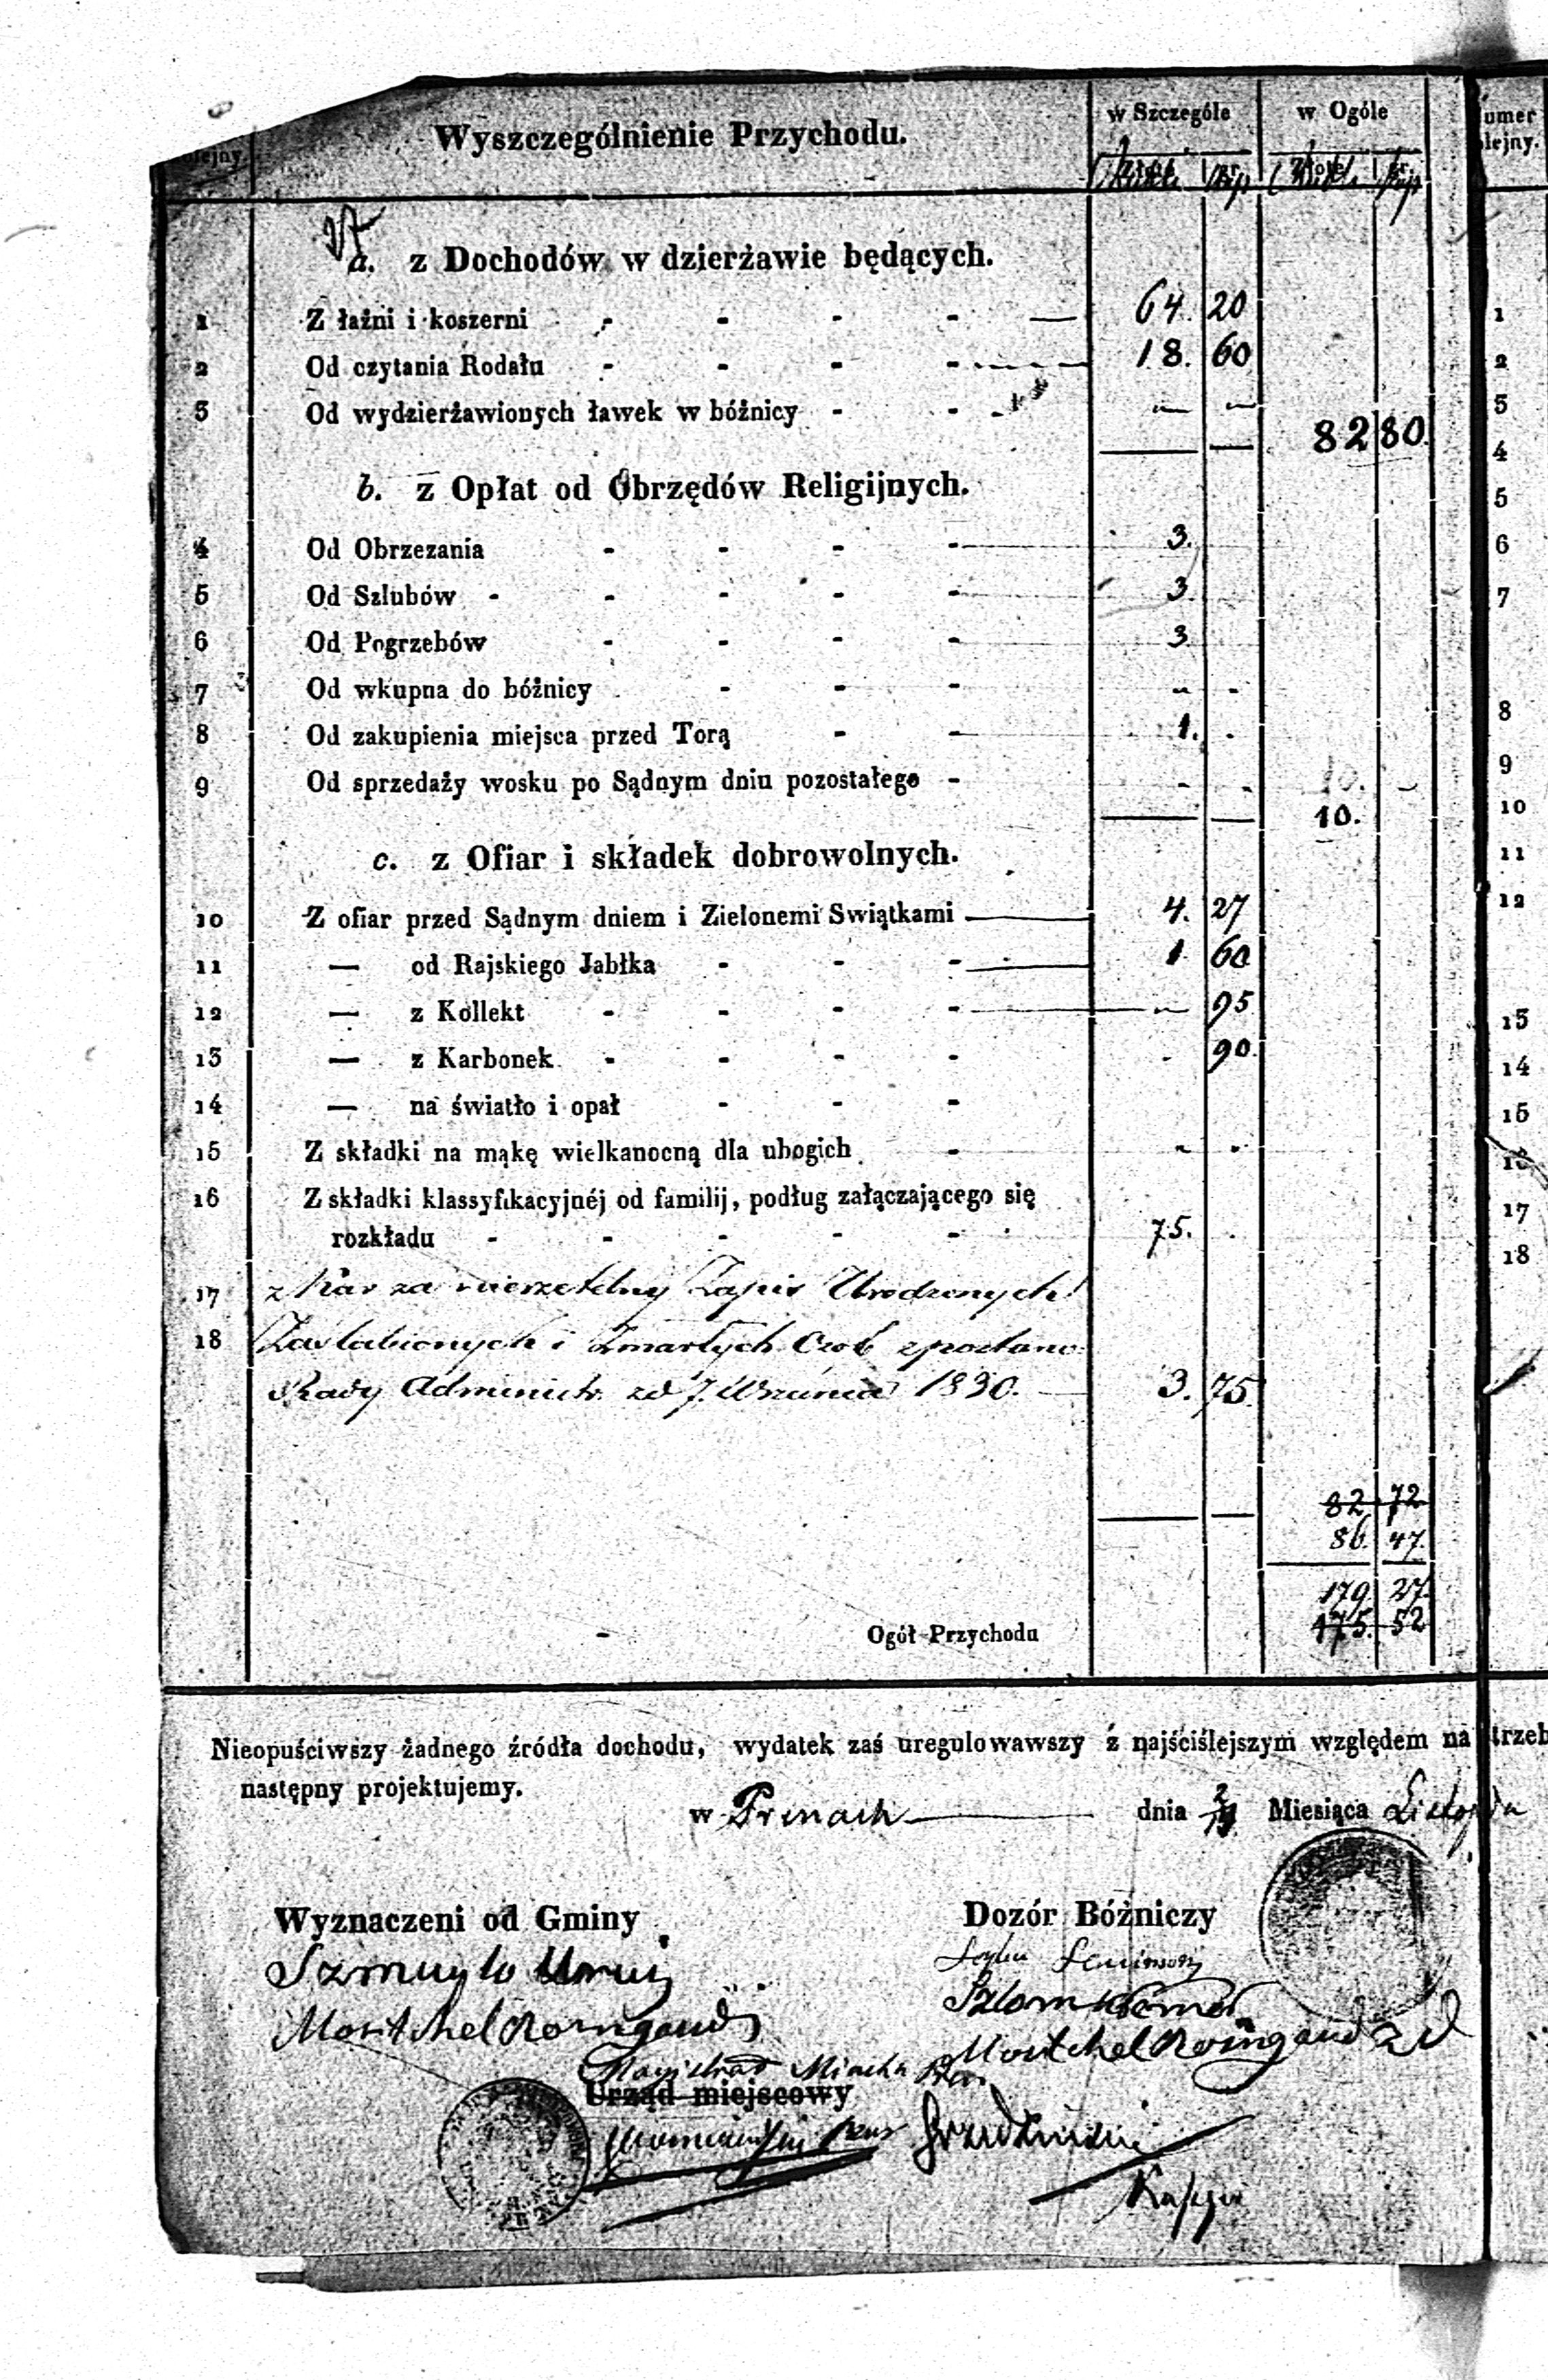 olejny. Wyszczególnienie Przychodu. w Szczególe w Ogóle umer
lejny.
Rubli kop Rubli kop
a. z Dochodów w dzierżawie będących.
1 Z łaźni i koszerni - - - - — 64. 20 1
2 Od czytania Rodału - - - - — 18. 60 2
3 Od wydzierżawionych ławek w bóżnicy - - - — — 3
82 80. 4
b. z Opłat od Obrzędów Religijnych. 5
4 Od Obrzezania - - - - 3. 6
5 Od Szlubów - - - - - 3. 7
6 Od Pogrzebów - - - - 3
7 Od wkupna do bóżnicy - - - - -
8 Od zakupienia miejsca przed Torą - - 1. . 8
9 Od sprzedaży wosku po Sądnym dniu pozostałego - - - 10. - 9
10. 10
c. z Ofiar i składek dobrowolnych. 11
10 Z ofiar przed Sądnym dniem i Zielonemi Swiątkami — 4. 27 12
11 — od Rajskiego Jabłka - - - — 1. 60
12 — z Kollekt - - - - — 95 13
13 — z Karbonek - - - - - 90. 14
14 — na światło i opał - - - 15
15 Z składki na mąkę wielkanocną dla ubogich - - - 16
16 Z składki klassyfikacyjnéj od familij, podług załączającego się 17
rozkładu - - - - - 75. . 18
17 z Kar za nierzetelny Zapis Urodzonych
18 Zaślubionych i Zmarłych Osób z postano:
Rady Administr. zd 7. Września 1830. — 3. 75.
82 72
86. 47.
179 27.
175. 52
- Ogół Przychodu
Nieopuściwszy żadnego źródła dochodu, wydatek zaś uregulowawszy z najściślejszym względem na trzeb
następny projektujemy.
w Prenach — dnia Miesiąca Listopada
Wyznaczeni od Gminy Dozór Bóżniczy
Szmuylo
Mortchel Rozngard Mortchel Rozngard
Magistrat Miasta
Urząd miejscowy
Kassyer